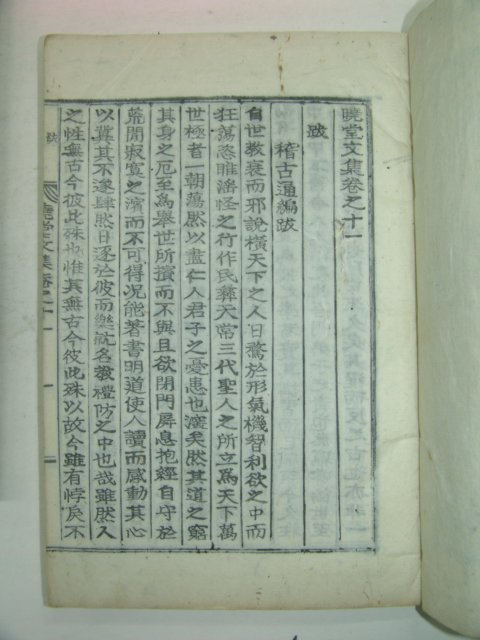 曉堂文集卷之十一
跋
稽古通編跋
自世敎衰而邪說橫天下之人日騖於形氣機智利欲之中而
狂蕩恣睢譎怪之行作民彛天常三代聖人之所立爲天下萬
世極者一朝蕩然以盡仁人君子之憂患也濵矣然其道之窮
其身之厄至爲舉世所擯而不與且欲閉門屛息抱經自守於
荒閒寂寞之濱而不可得况能著書明道使人讀而感動其心
以冀其不遂肆然日逐於彼而樂就名敎禮防之中也哉雖然人
之性無古今彼此殊也惟其無古今彼此殊以故今雖有悖戾不
曉堂文集卷之十一
跋